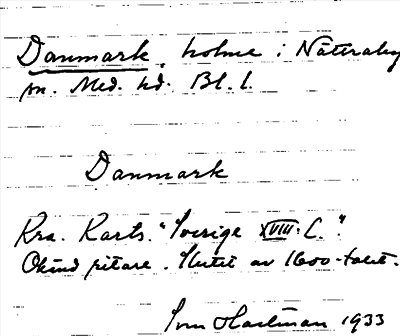 Danmark, holme i Nättraby
sn. Med. hd. Bl. l.
Danmark
Kra. Karts. "Sverige XVIII. C."
Okänd ritare. Slutet av 1600-talet.
Sven Hartman 1933